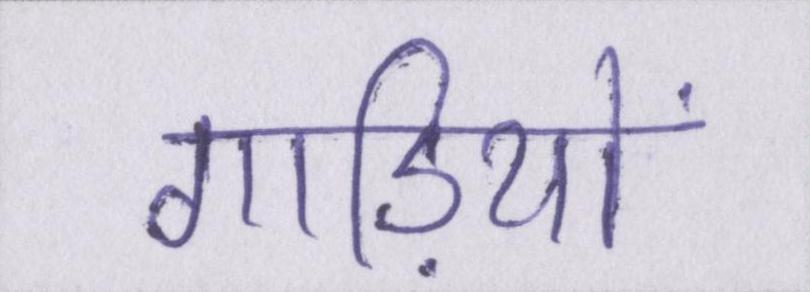 गाड़ियों